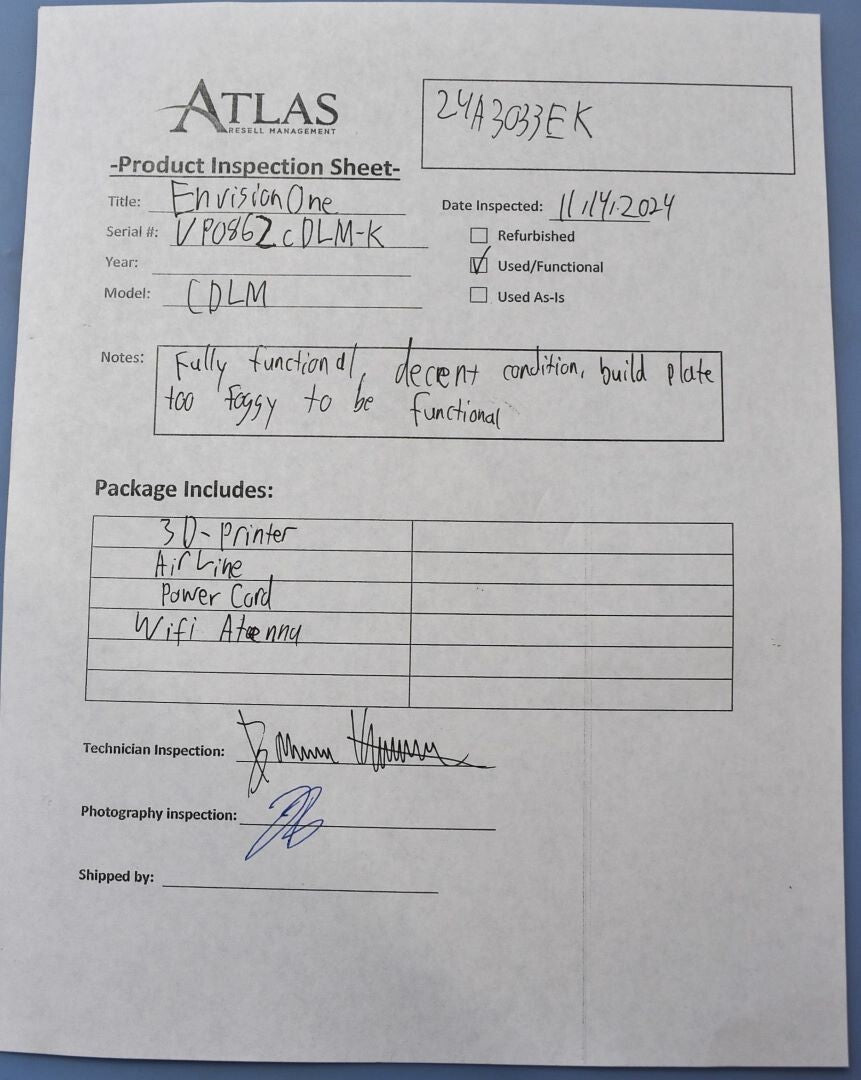 ATLAS
RESELL MANAGEMENT
24A3033EK
-Product Inspection Sheet-
Title: EnvisionOne
Date Inspected: 11/14/2024
Serial #: VP0862cDLM-K
Refurbished
Year:
Used/Functional
Model: CDLM
Used As-Is
Notes: Fully functional, decent condition, build plate
too foggy to be functional
Package Includes:
3D-Printer
Air Line
Power Cord
Wifi Ateenna
Technician Inspection:
Photography inspection:
Shipped by: